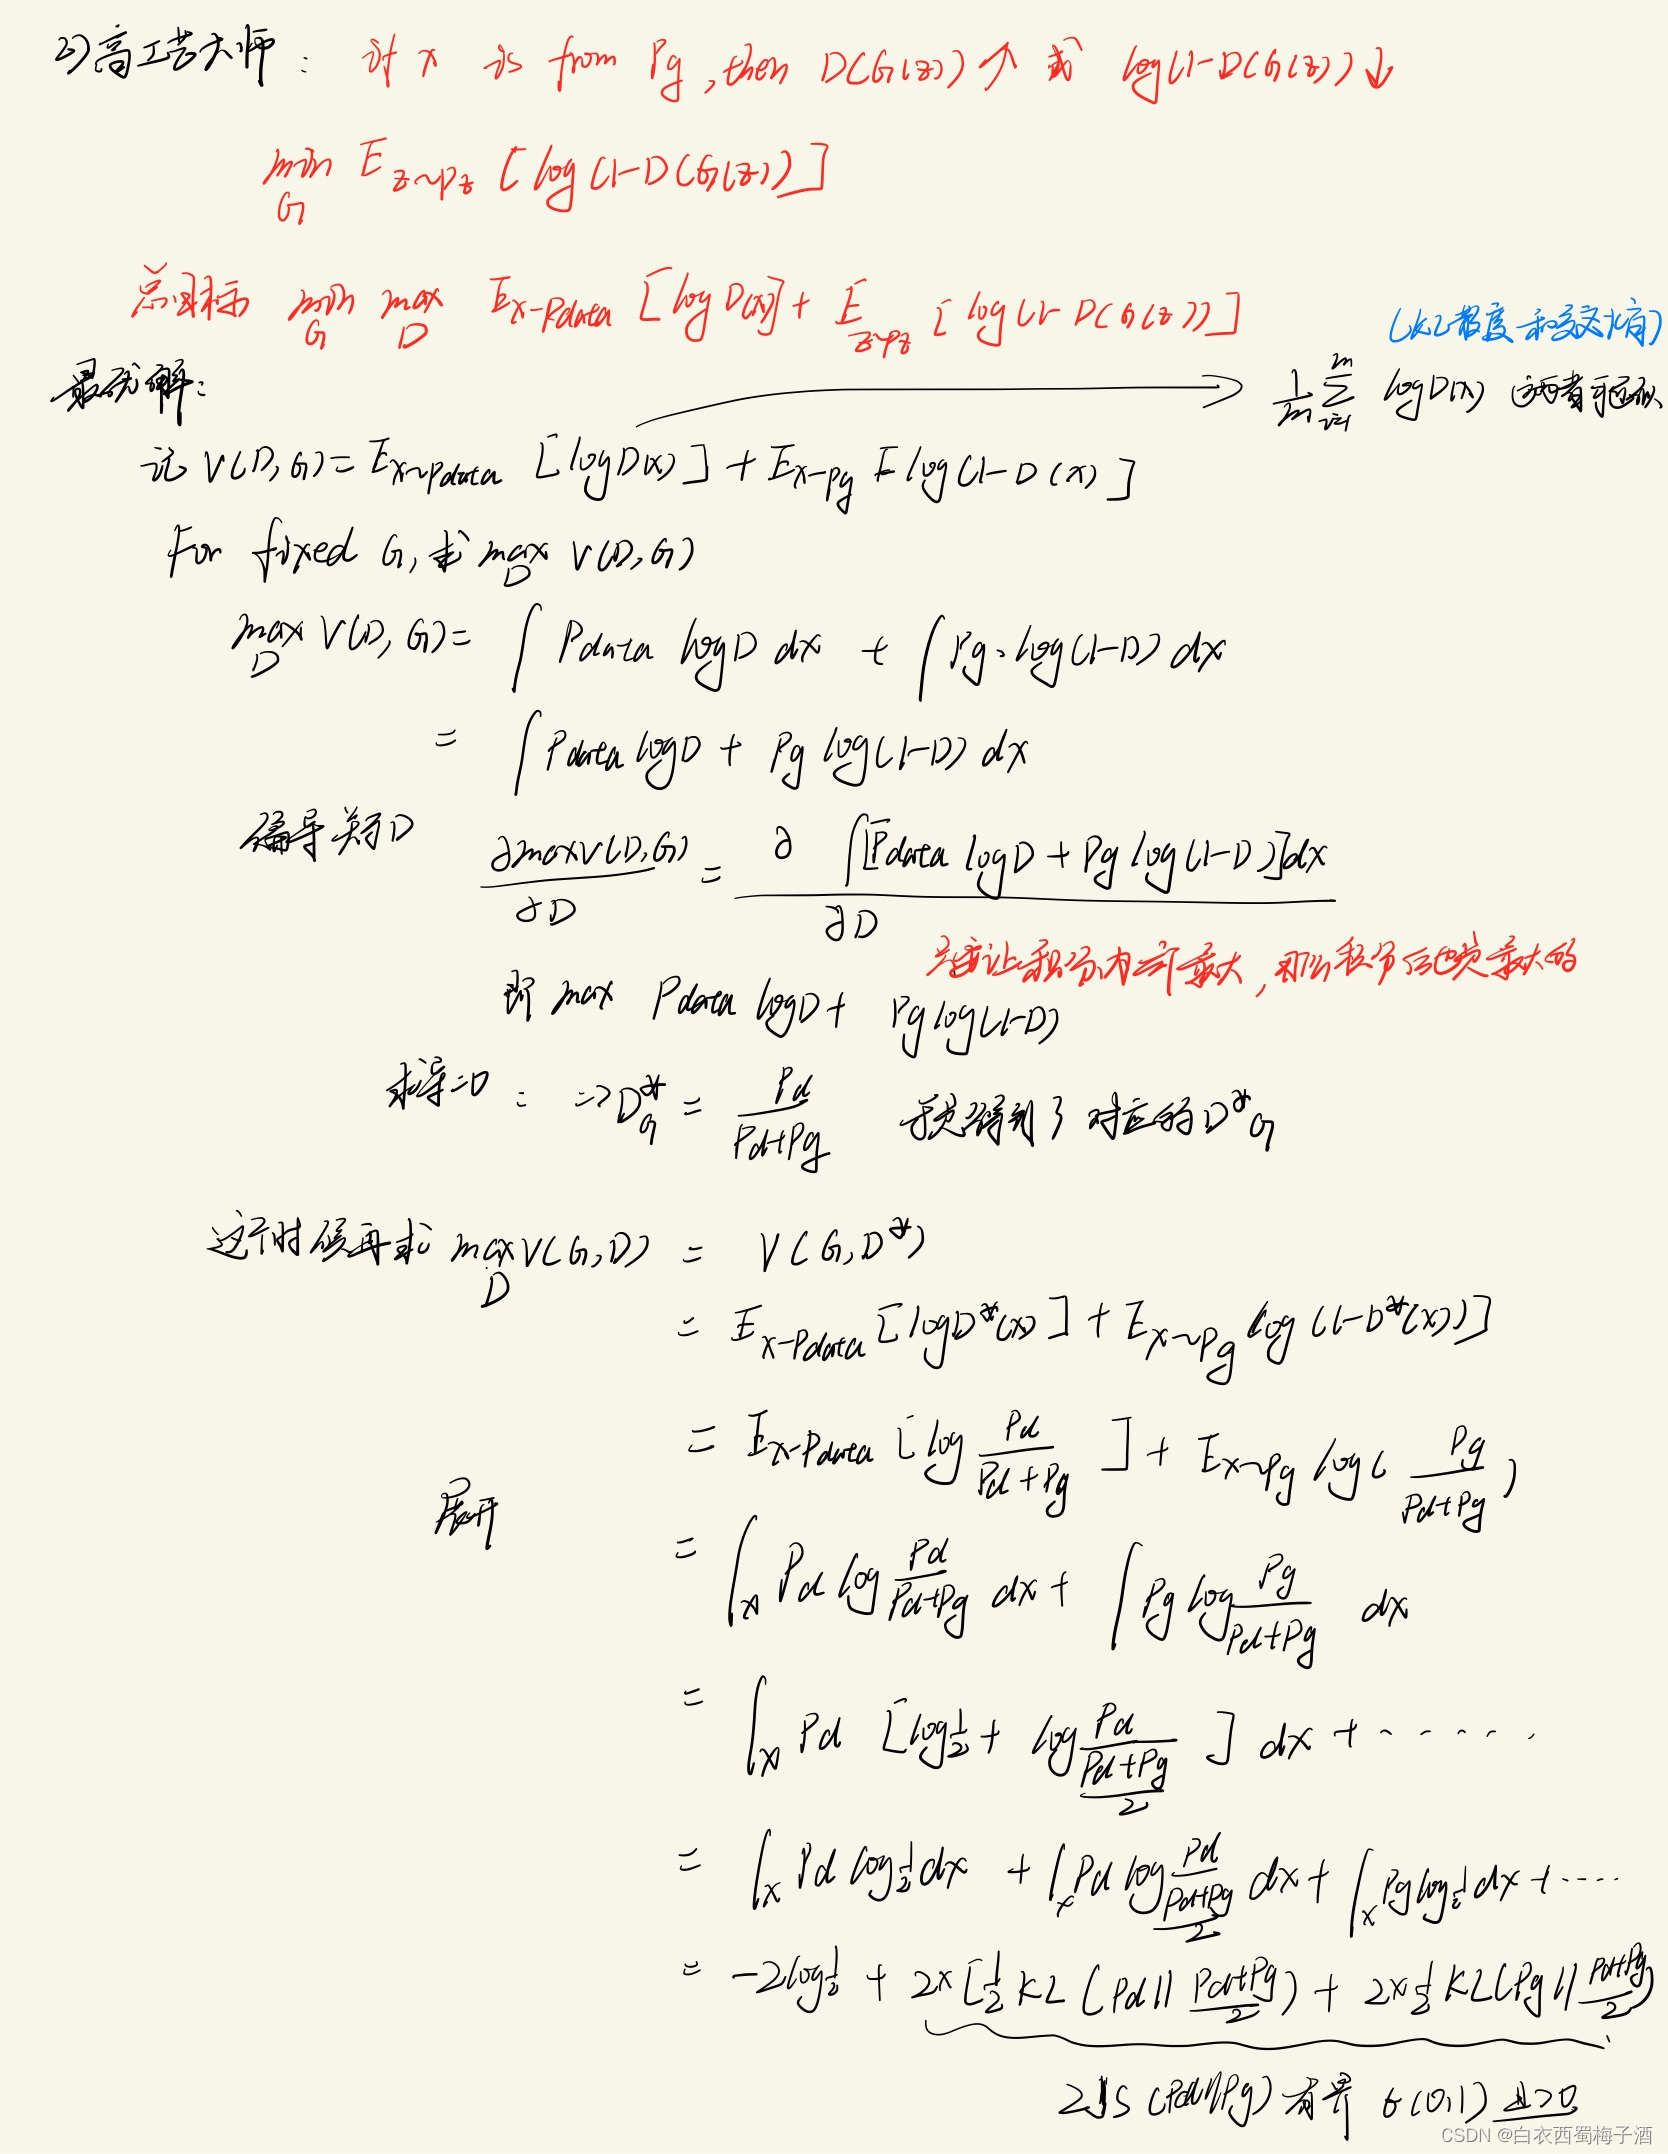 2)高工艺大师: 对 x is from Pg, then D(G(z))↑ 或 log(1-D(G(z))↓
min_G E_{z~Pz} [log(1-D(G(z))]
总目标 min_G max_D E_{x-Pdata} [log D(x)] + E_{z~Pz} [log(1-D(G(z))]
(KL散度和交叉熵)
最优解:
→ 1/m Σ_{i=1}^m log D(x) 这两者可近似
记 V(D,G) = E_{x~Pdata} [log D(x)] + E_{x-Pg} [log(1-D(x)]
For fixed G, 求 max_D V(D,G)
max_D V(D,G) = ∫ Pdata log D dx + ∫ Pg·log(1-D) dx
= ∫ Pdata log D + Pg log(1-D) dx
偏导关于D ∂max V(D,G)/∂D = ∂ ∫[Pdata log D + Pg log(1-D)]dx / ∂D
只要让积分内部最大,那么积分后也是最大的
即 max Pdata log D + Pg log(1-D)
求导=0: => D*_G = Pd/(Pd+Pg) 于是得到了对应的D*_G
这个时候再求 max_D V(G,D) = V(G,D*)
= E_{x-Pdata} [log D*(x)] + E_{x~Pg} log(1-D*(x))]
= E_{x-Pdata} [log Pd/(Pd+Pg)] + E_{x~Pg} log( Pg/(Pd+Pg) )
展开
= ∫_x Pd log Pd/(Pd+Pg) dx + ∫ Pg log Pg/(Pd+Pg) dx
= ∫_x Pd [log 1/2 + log Pd/((Pd+Pg)/2)] dx + ......
= ∫_x Pd log 1/2 dx + ∫_x Pd log Pd/((Pd+Pg)/2) dx + ∫_x Pg log 1/2 dx + ....
= -2log 1/2 + 2×[1/2 KL(Pd || (Pd+Pg)/2) + 2×1/2 KL(Pg || (Pd+Pg)/2)
2JS(Pd||Pg) 有界 ∈(0,1) 且>0
CSDN @白衣西蜀梅子酒